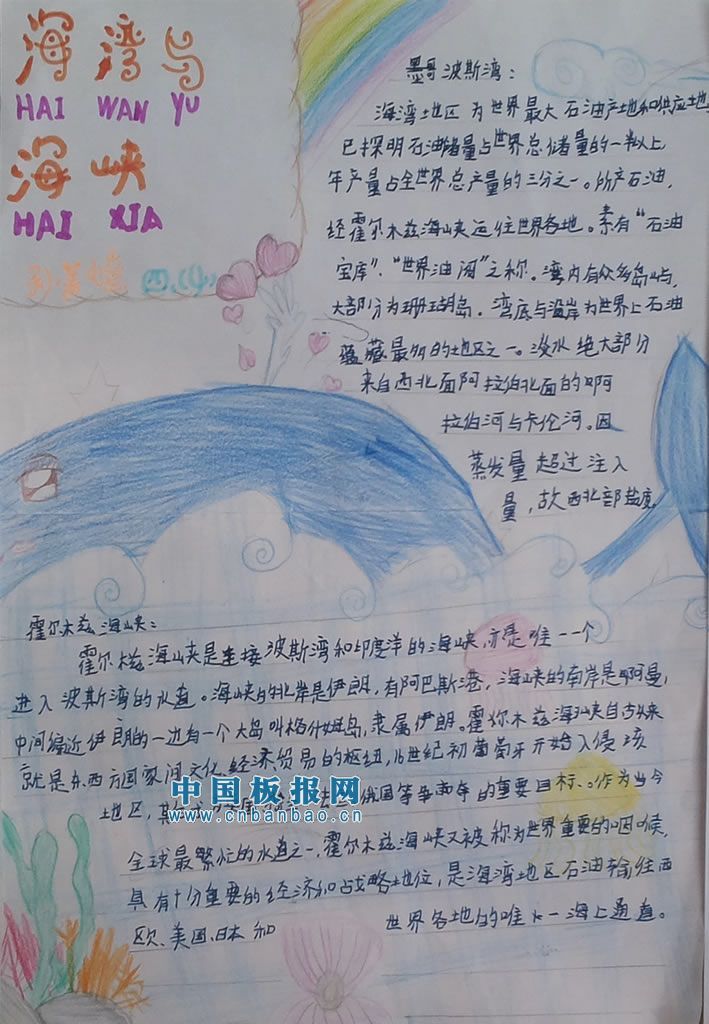 海湾与
HAI WAN YU
海峡
HAI XIA
四、(4)
墨哥波斯湾：
海湾地区为世界最大石油产地和供应地,
已探明石油储量占世界总储量的一半以上,
年产量占全世界总产量的三分之一。所产石油,
经霍尔木兹海峡运往世界各地。素有“石油
宝库”、“世界油阀”之称。湾内有众多岛屿,
大部分为珊瑚岛．湾底与沿岸为世界上石油
蕴藏最多的地区之一。淡水绝大部分
来自西北面阿拉伯北面的啊
拉伯河与卡伦河。因
蒸发量超过注入
量，故西北部盐度
霍尔木兹海峡：
霍尔木兹海峡是连接波斯湾和印度洋的海峡,亦是唯一一个
进入波斯湾的水道。海峡的北岸是伊朗,有阿巴斯港，海峡的南岸是啊曼,
中间偏近伊朗的一边有一个大岛叫格什姆岛,隶属伊朗。霍尔木兹海峡自古以来
就是东西方国家间文化、经济、贸易的枢纽,16世纪初葡萄牙开始入侵该
地区，俄国等争夺的重要目标、。作为当今
中国板报网
www.cnbanbao.cn
全球最繁忙的水道之一,霍尔木兹海峡又被称为世界重要的咽喉,
具有十分重要的经济和占战略地位，是海湾地区石油输往西
欧、美国、日本和 世界各地的唯一海上通道。